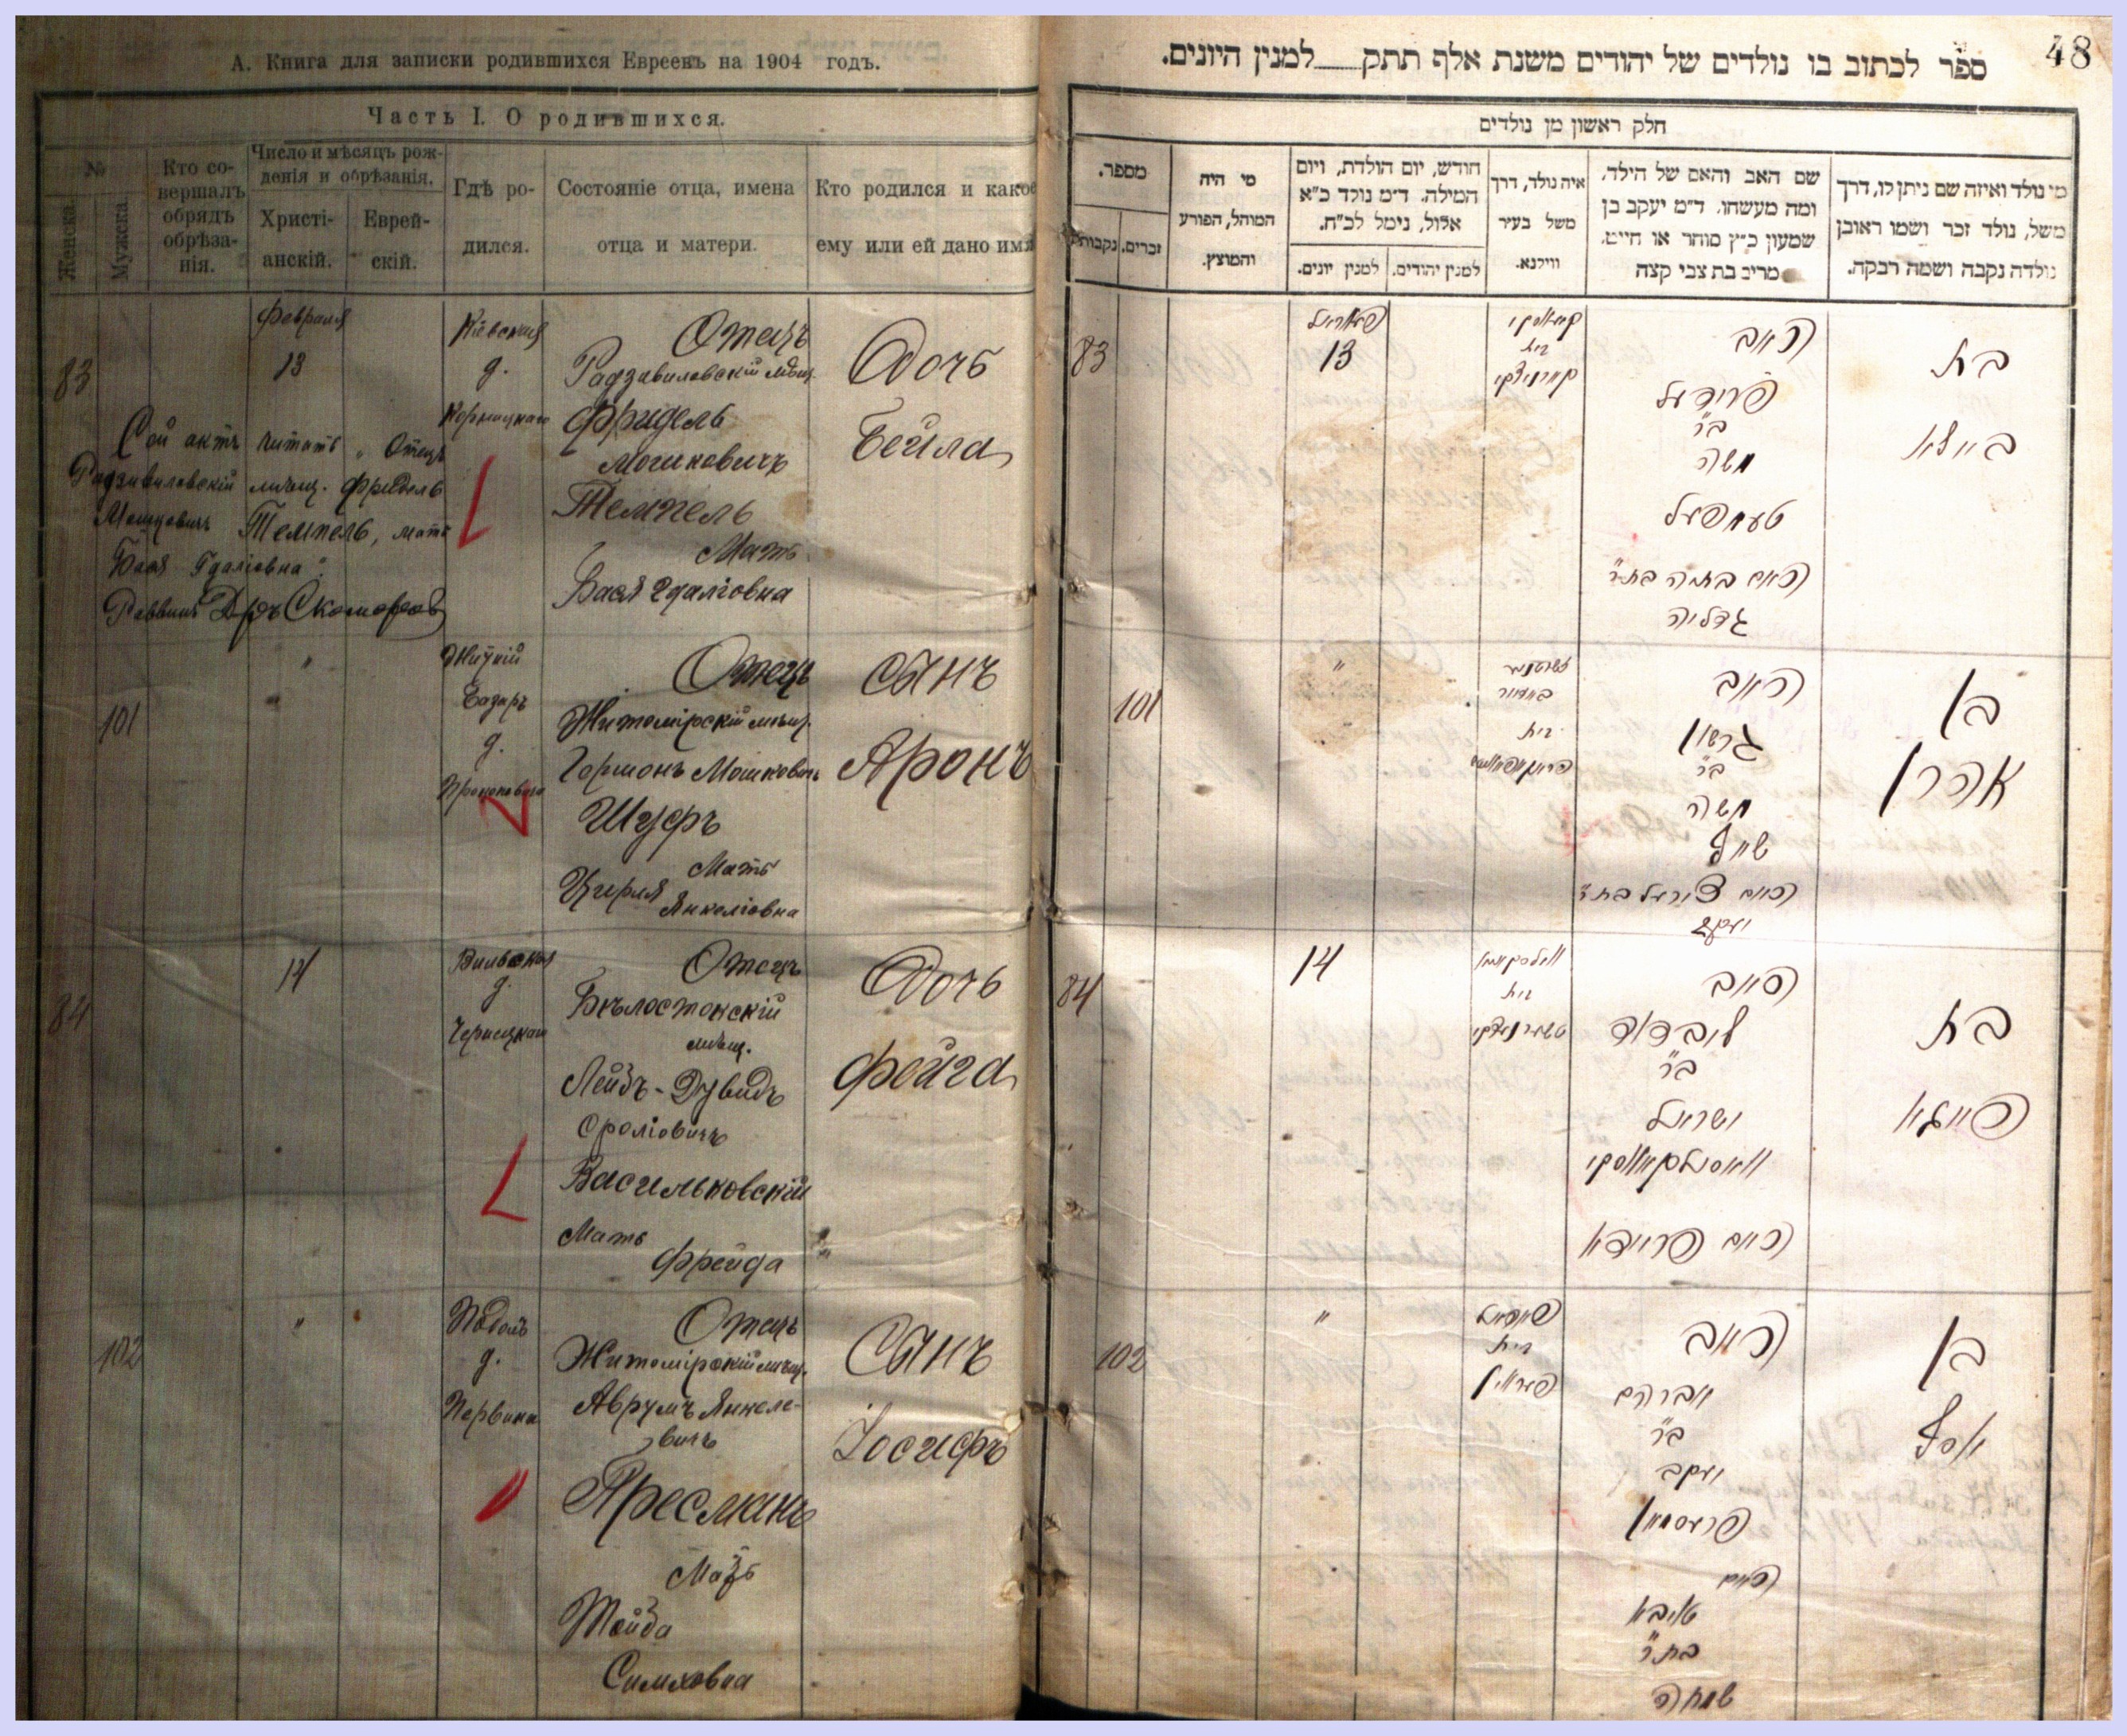 А. Книга для записки родившихся Евреевъ на 1904 годъ.
Часть I. О родившихся.
№
Женска.
Мужска.
Кто со-
вершалъ
обрядъ
обрѣза-
нія.
Число и мѣсяцъ рож-
денія и обрѣзанія.
Христі-
анскій.
Еврей-
скій.
Гдѣ ро-
дился.
Состояніе отца, имена
отца и матери.
Кто родился и какое
ему или ей дано имя
83
Февраля
13
Кіевская
д.
Корницкаго
Отецъ
Радзивиловскій мѣщ.
Фридель
Мошковичъ
Темпель
Мать
Бася Гдаліовна
Дочь
Бейла
Сей актъ читать „Отецъ
Радзивиловскій мѣщ. Фридель
Мошковичъ Темпель, мать
Бася Гдаліовна".
Раввинъ Д-ръ Скомаровъ
101
"
Житній
базаръ
д.
Отецъ
Житомірскій мѣщ.
Гершонъ Мошковичъ
Шуфъ
Мать
Цирля Янкеліовна
Сынъ
Аронъ
84
14
Вильская
д.
Отецъ
Бѣлостокскій
мѣщ.
Лейбъ-Дувидъ
Сроліовичъ
Васильковскій
Мать
Фрейда
Дочь
Фейга
102
"
Подолъ
д.
Отецъ
Житомірскій мѣщ.
Аврумъ Янкеле-
вичъ
Пресманъ
Мать
Тойба
Симховна
Сынъ
Іосифъ
48
ספר לכתוב בו נולדים של יהודים משנת אלף תתק___למנין היונים.
חלק ראשון מן נולדים
מספר.
נקבות.
זכרים.
מי היה
המוהל, הפורע
והמוצץ.
חודש, יום הולדת, ויום
המילה. ד״מ נולד כ״א
אלול, נימל לכ״ח.
למנין יונים.
למנין יהודים.
איה נולד, דרך
משל בעיר
ווילנא.
שם האב והאם של הילד.
ומה מעשהו. ד״מ יעקב בן
שמעון כ״ץ סוחר או חייט.
מריב בת צבי קצה
מי נולד ואיזה שם ניתן לו, דרך
משל, נולד זכר ושמו ראובן
נולדה נקבה ושמה רבקה.
83
13
בית
האב
פרידעל
ב״ר
משה
טעמפעל
האם בתיה בת״ר
גדליה
בת
ביילא
101
"
בית
האב
גרשון
ב״ר
משה
שויף
האם צירעל בת״ר
יעקב
בן
אהרן
84
14
בית
האב
ליב דוד
ב״ר
ישראל
וואסילקאווסקי
האם פריידא
בת
פייגא
102
"
בית
האב
אברהם
ב״ר
יעקב
פרעסמאן
האם
טויבא
בת״ר
שמחה
בן
יוסף